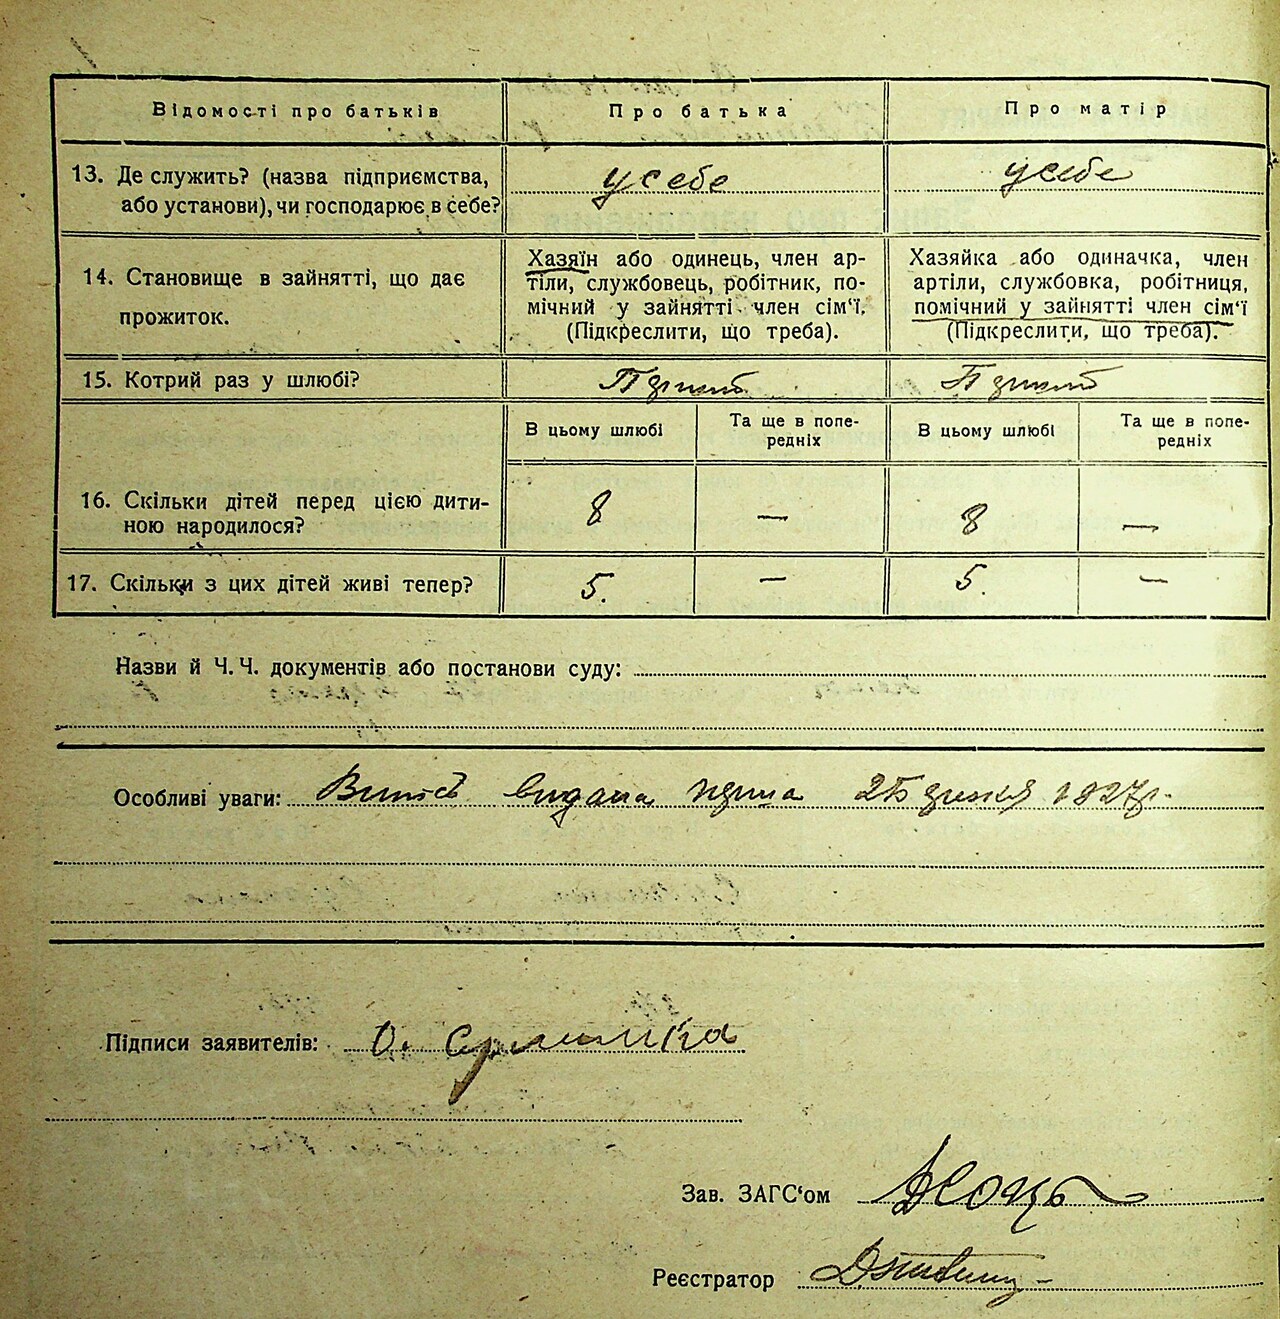 Відомості про батьків
Про батька
Про матір
13. Де служить? (назва підприємства,
або установи), чи господарює в себе?
у себе
у себе
14. Становище в зайнятті, що дає
прожиток.
Хазяїн або одинець, член ар-
тіли, службовець, робітник, по-
мічний у зайнятті член сім'ї.
(Підкреслити, що треба).
Хазяйка або одиначка, член
артіли, службовка, робітниця,
помічний у зайнятті член сім'ї
(Підкреслити, що треба).
15. Котрий раз у шлюбі?
В цьому шлюбі
Та ще в попе-
редніх
В цьому шлюбі
Та ще в попе-
редніх
16. Скільки дітей перед цією дити-
ною народилося?
8
—
8
—
17. Скільки з цих дітей живі тепер?
5.
—
5.
—
Назви й Ч. Ч. документів або постанови суду:
Особливі уваги: видана 1927р.
Підписи заявителів: О.
Зав. ЗАГС'ом
Реєстратор